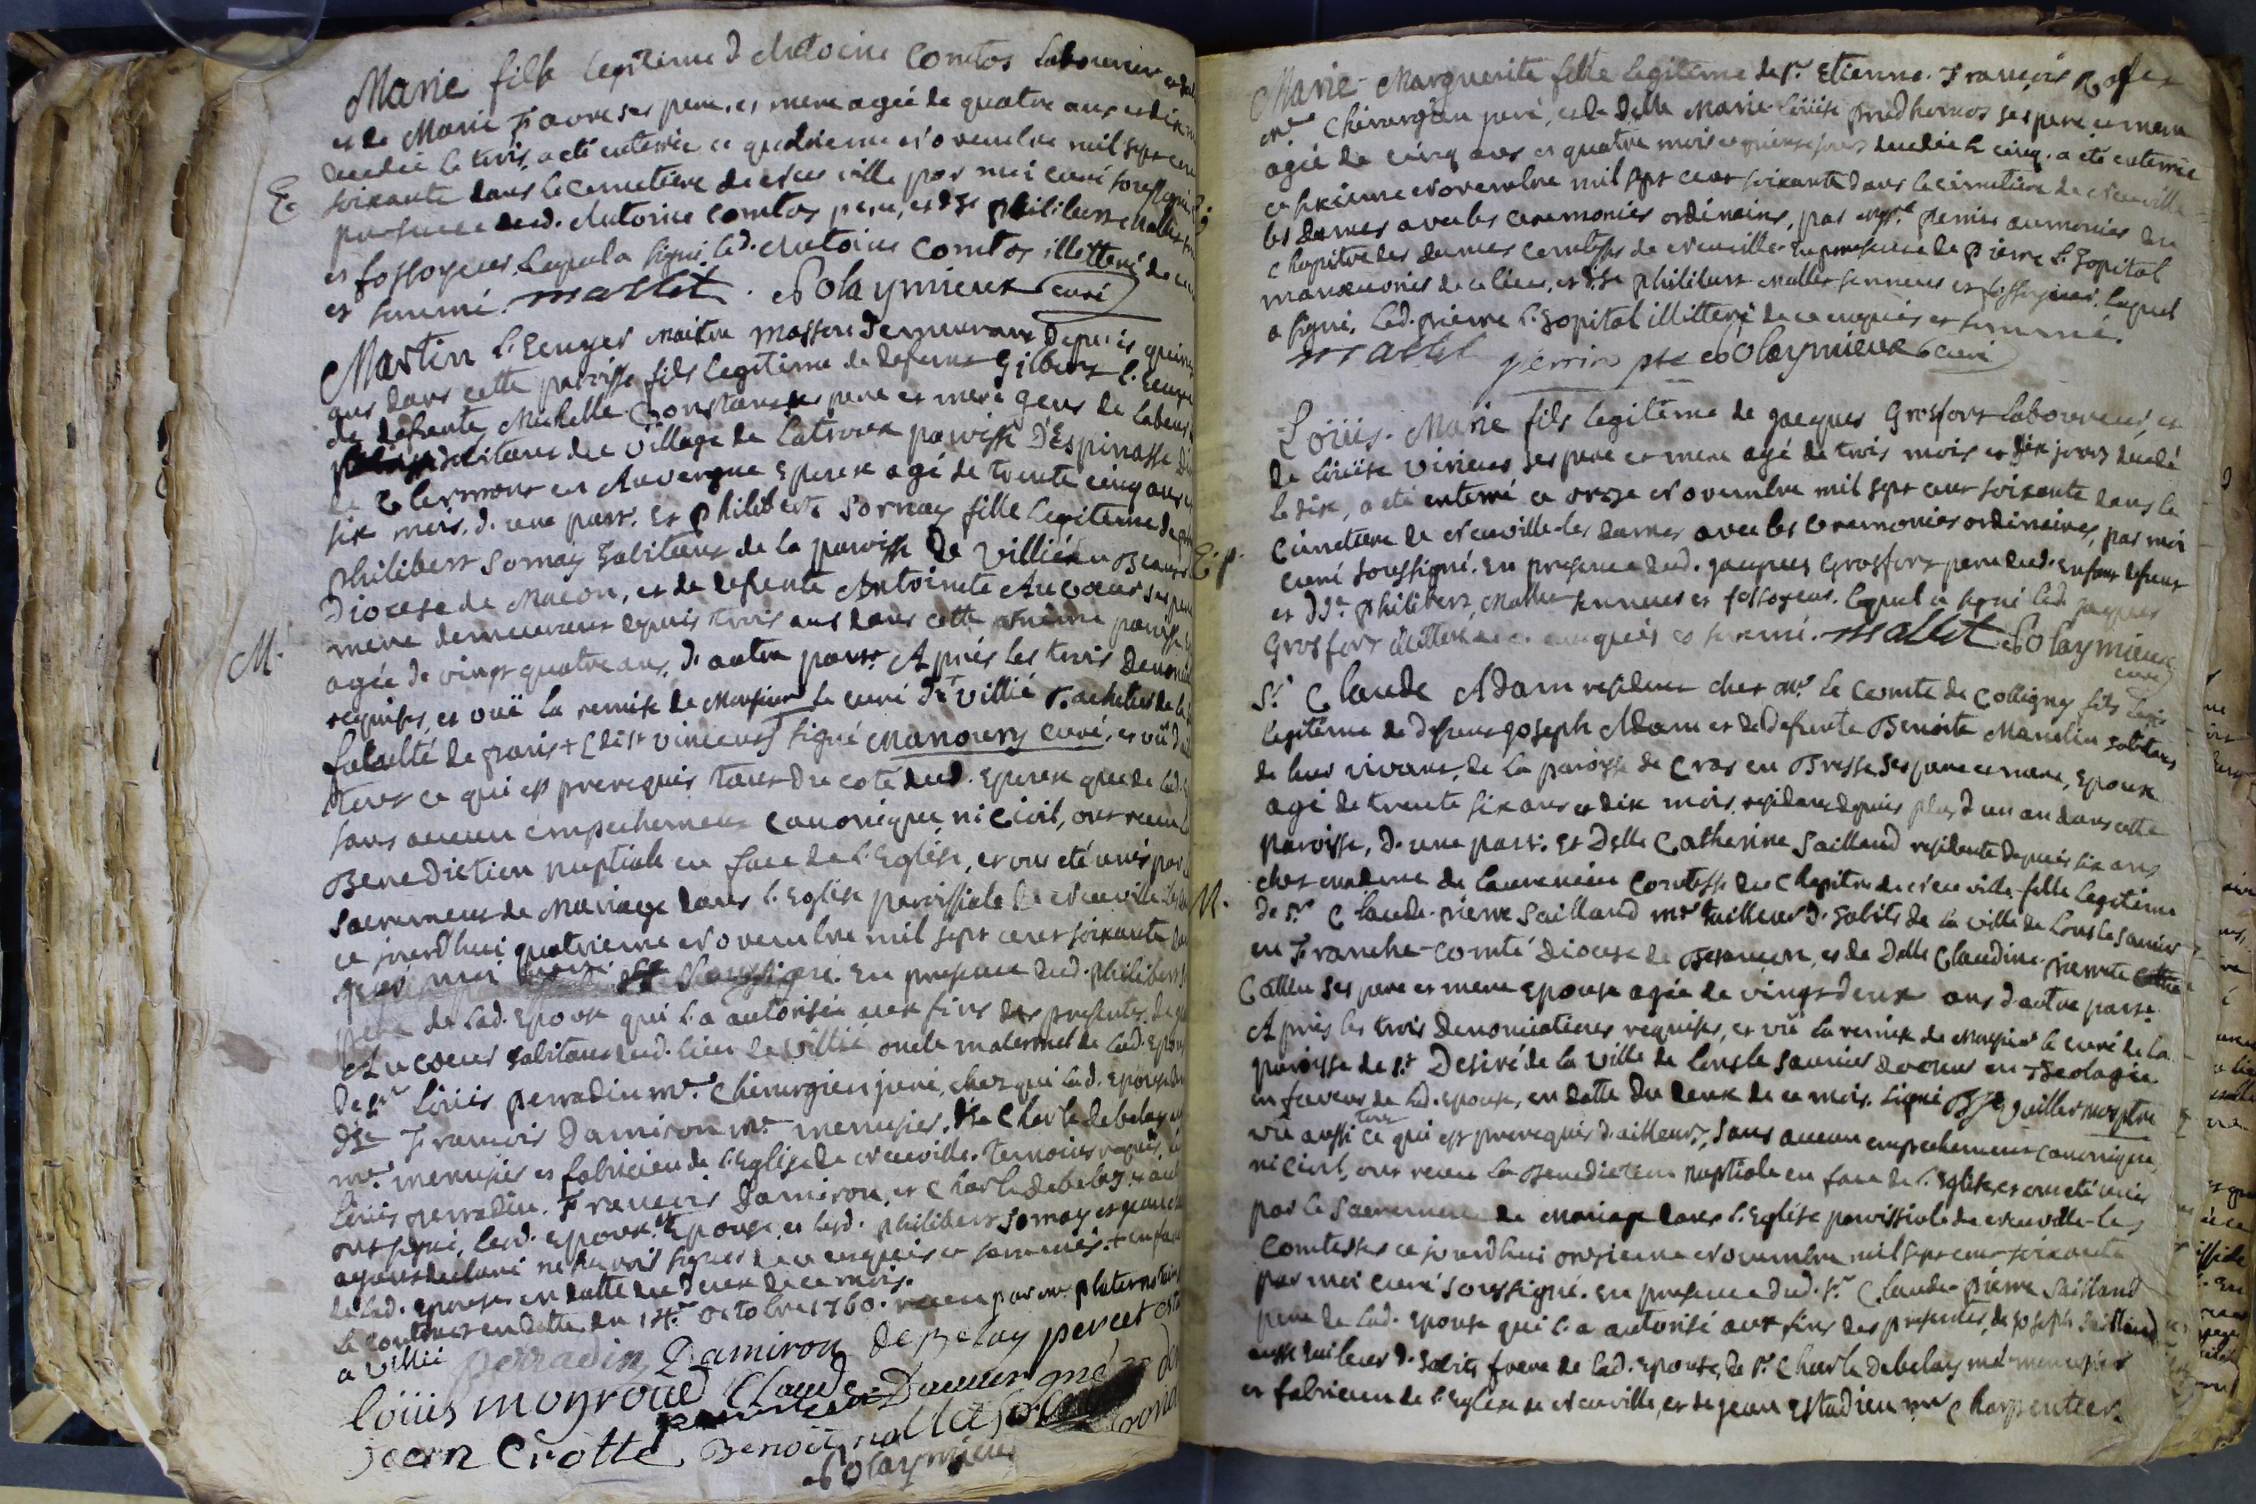 Marie fille legitime d'Antoine Comtos Laboureur
et de Marie Favre ses pere, et mere agée de quatre ans et dix
decedée le trois, a été enterrée ce quatrieme Novembre mil sept cent
E.
soixante dans le cemetiere de Neuville par moi curé soussigné
presence dud. Antoine Comtos pere, et de Philibert Mallet
et fossoyeur. Lequel a signé, led. Antoine Comtos illetteré de ce
et sommé. Mallet. Polaymieux curé
Martin L'Ecuyer Maitre Masson demeurant depuis quinze
ans dans cette paroisse fils legitime de defunt Gilbert L'Ecuyer
de defunte Michelle Constance ses pere et mere gens de labeur
habitans du village de Latroux paroisse d'Espinasse
de Clermont en Auvergne Epoux agé de trente cinq ans
six mois, d'une part. Et Philiberte Sornay fille legitime de
Philibert Sornay habitans de la paroisse de Villié en Beaujo
Diocese de Macon, et de defunte Antoinete Aucoeur ses pere
mere demeurant depuis trois ans dans cette meme paroisse
M.
agée de vingt quatre ans, d'autre part. Après les trois denonci
requises, et vuë la remise de Monsieur le curé de Villié
faculté de Paris + signé Manoury curé, et vû d
tout ce qui est prerequis tant du coté dud. Epoux que de lad.
sans aucun empechement canonique ni civil, ont receu
Benediction nuptiale en face de l'Eglise, et ont été unis par
sacrement de Mariage dans l'Eglise paroissiale de Neuville
ce jourd'hui quatrieme Novembre mil sept cent soixante
par moi curé soussigné. En presence dud. Philibert
pere de lad. Epouse qui l'a autorisée aux fins des presentes, de
Aucoeur habitant dud. lieu de Villié oncle maternel de lad. Epouse
de Sr. Loüis Perradin Me. Chirurgien juré, chez qui lad. Epouse
de François Damiron Me. menusier, de Charle Debelay
me. menusier et fabricien de l'Eglise de Neuville. Temoins requis,
Loüis Perradin, François Damiron, et Charle Debelay
ont signé, lesd. Epoux et Epouse, et lesd. Philibert Sornay et
ayant declaré ne sçavoir signer de ce enquis et sommés. +
de lad. Epouse en datte du deux de ce mois.
Le contract en datte du 14e. Octobre 1760. receu par me.
a Villié
Perradin Damiron Debelay
Loüis Moyroud Claude
Jean Crotte Benoit
Polaymieux
Marie-Marguerite fille legitime de Sr. Etienne-François
me. Chirurgien juré, et de Delle Marie-Loüise Prudhomos ses pere et mere
agée de cinq ans et quatre mois et quinze jours decedée le cinq, a été enterrée
ce sixieme Novembre mil sept cent soixante dans le cimetiere de Neuville
les Dames avec les ceremonies ordinaires, par Perrin aumonier du
Chapitre des Dames Comtesses de Neuville. En presence de Pierre L'Hopital
manoeuvrier de ce lieu, et de Philibert Mallet sonneur et fossoyeur. Lequel
a signé, led. Pierre L'Hopital illitteré de ce enquis et sommé.
Mallet Perrin ptre Polaymieux curé
Loüis-Marie fils legitime de Jacques Grosfort Laboureur, et
de Loüise Virieux ses pere et mere agé de trois mois et dix jours decedé
le dix, a été enterré ce onze Novembre mil sept cent soixante dans le
cimetiere de Neuville-les Dames avec les ceremonies ordinaires, par moi
E. p.
curé soussigné. En presence dud. Jacques Grosfort pere dud. Enfant defunt
et de Philibert Mallet sonneur et fossoyeur. Lequel a signé led. Jacques
Grosfort illitteré de ce enquis et sommé. Mallet Polaymieux
curé
Sr. Claude Adam resident chez Mr. Le Comte de Colligny fils
legitime de defunt Joseph Adam et de defunte Benoite Manelin habitans
de leur vivant, de la paroisse de Cras en Bresse, ses pere et mere, Epoux
agé de trente six ans et dix mois, residant depuis plus d'un an dans cette
paroisse, d'une part. Et Delle Catherine Saillaud residente depuis six ans
chez madame de Laurencin Comtesse du Chapitre de Neuville fille legitime
M.
de Sr. Claude-Pierre Saillaud me. tailleur d'habits de la ville de Lons le Saunier
en Franche-Comté Diocese de Besançon, et de Delle Claudine-Pierrete
Catten ses pere et mere Epouse agée de vingt deux ans d'autre part.
Après les trois denonciations requises, et vû la remise de Monsieur le curé de la
paroisse de St. Desiré de la ville de Lons le Saunier docteur en Theologie
en faveur de lad. Epouse, en datte du deux de ce mois. Signé
vû aussi tout ce qui est prerequis d'ailleurs, sans aucun empechement canonique,
ni civil, ont receu la Benediction nuptiale en face de l'Eglise, et ont été unis
par le Sacrement de Mariage dans l'Eglise paroissiale de Neuville-les
Comtesses ce jourd'hui onzieme Novembre mil sept cent soixante
par moi curé soussigné. En presence dud. Sr. Claude-Pierre Saillaud
pere de lad. Epouse qui l'a autorisé aux fins des presentes, de Joseph Saillaud
aussi tailleur d'habits frere de lad. Epouse, de Sr. Charle Debelay me. menusier
et fabricien de l'Eglise de Neuville, et de Jean Estadieu me. Charpentier.